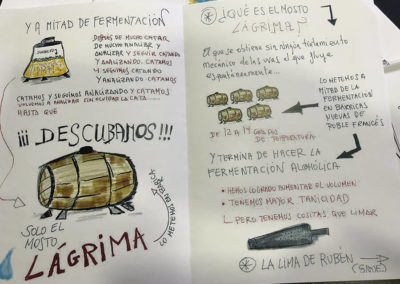 Y A MITAD DE FERMENTACIÓN
DESPUÉS DE MUCHO CATAR,
DE MUCHO ANALIZAR Y
ANALIZAR Y SEGUIR CATANDO
Y ANALIZANDO. CATAMOS
Y SEGUIMOS CATANDO
Y ANALIZANDO CATAMOS
CATAMOS Y SEGUIMOS ANALIZANDO Y CATAMOS
VOLVEMOS A ANALIZAR SIN OLVIDAR LA CATA...
HASTA QUE
¡¡¡ DESCUBAMOS!!!
LO METEMOS
SOLO EL
MOSTO
LÁGRIMA
¿QUÉ ES EL MOSTO
LÁGRIMA?
El que se obtiene sin ningún tratamiento
mecánico de las uvas el que fluye
espontáneamente...
LO METEMOS A
MITAD DE LA
FERMENTACIÓN
EN BARRICAS
NUEVAS DE
ROBLE FRANCÉS
DE 12 A 14 GRADOS
DE TEMPERATURA
Y TERMINA DE HACER LA
FERMENTACIÓN ALCOHÓLICA
• HEMOS LOGRADO AUMENTAR EL VOLUMEN
• TENEMOS MAYOR TANICIDAD
PERO TENEMOS COSITAS QUE LIMAR
LA LIMA DE RUBÉN